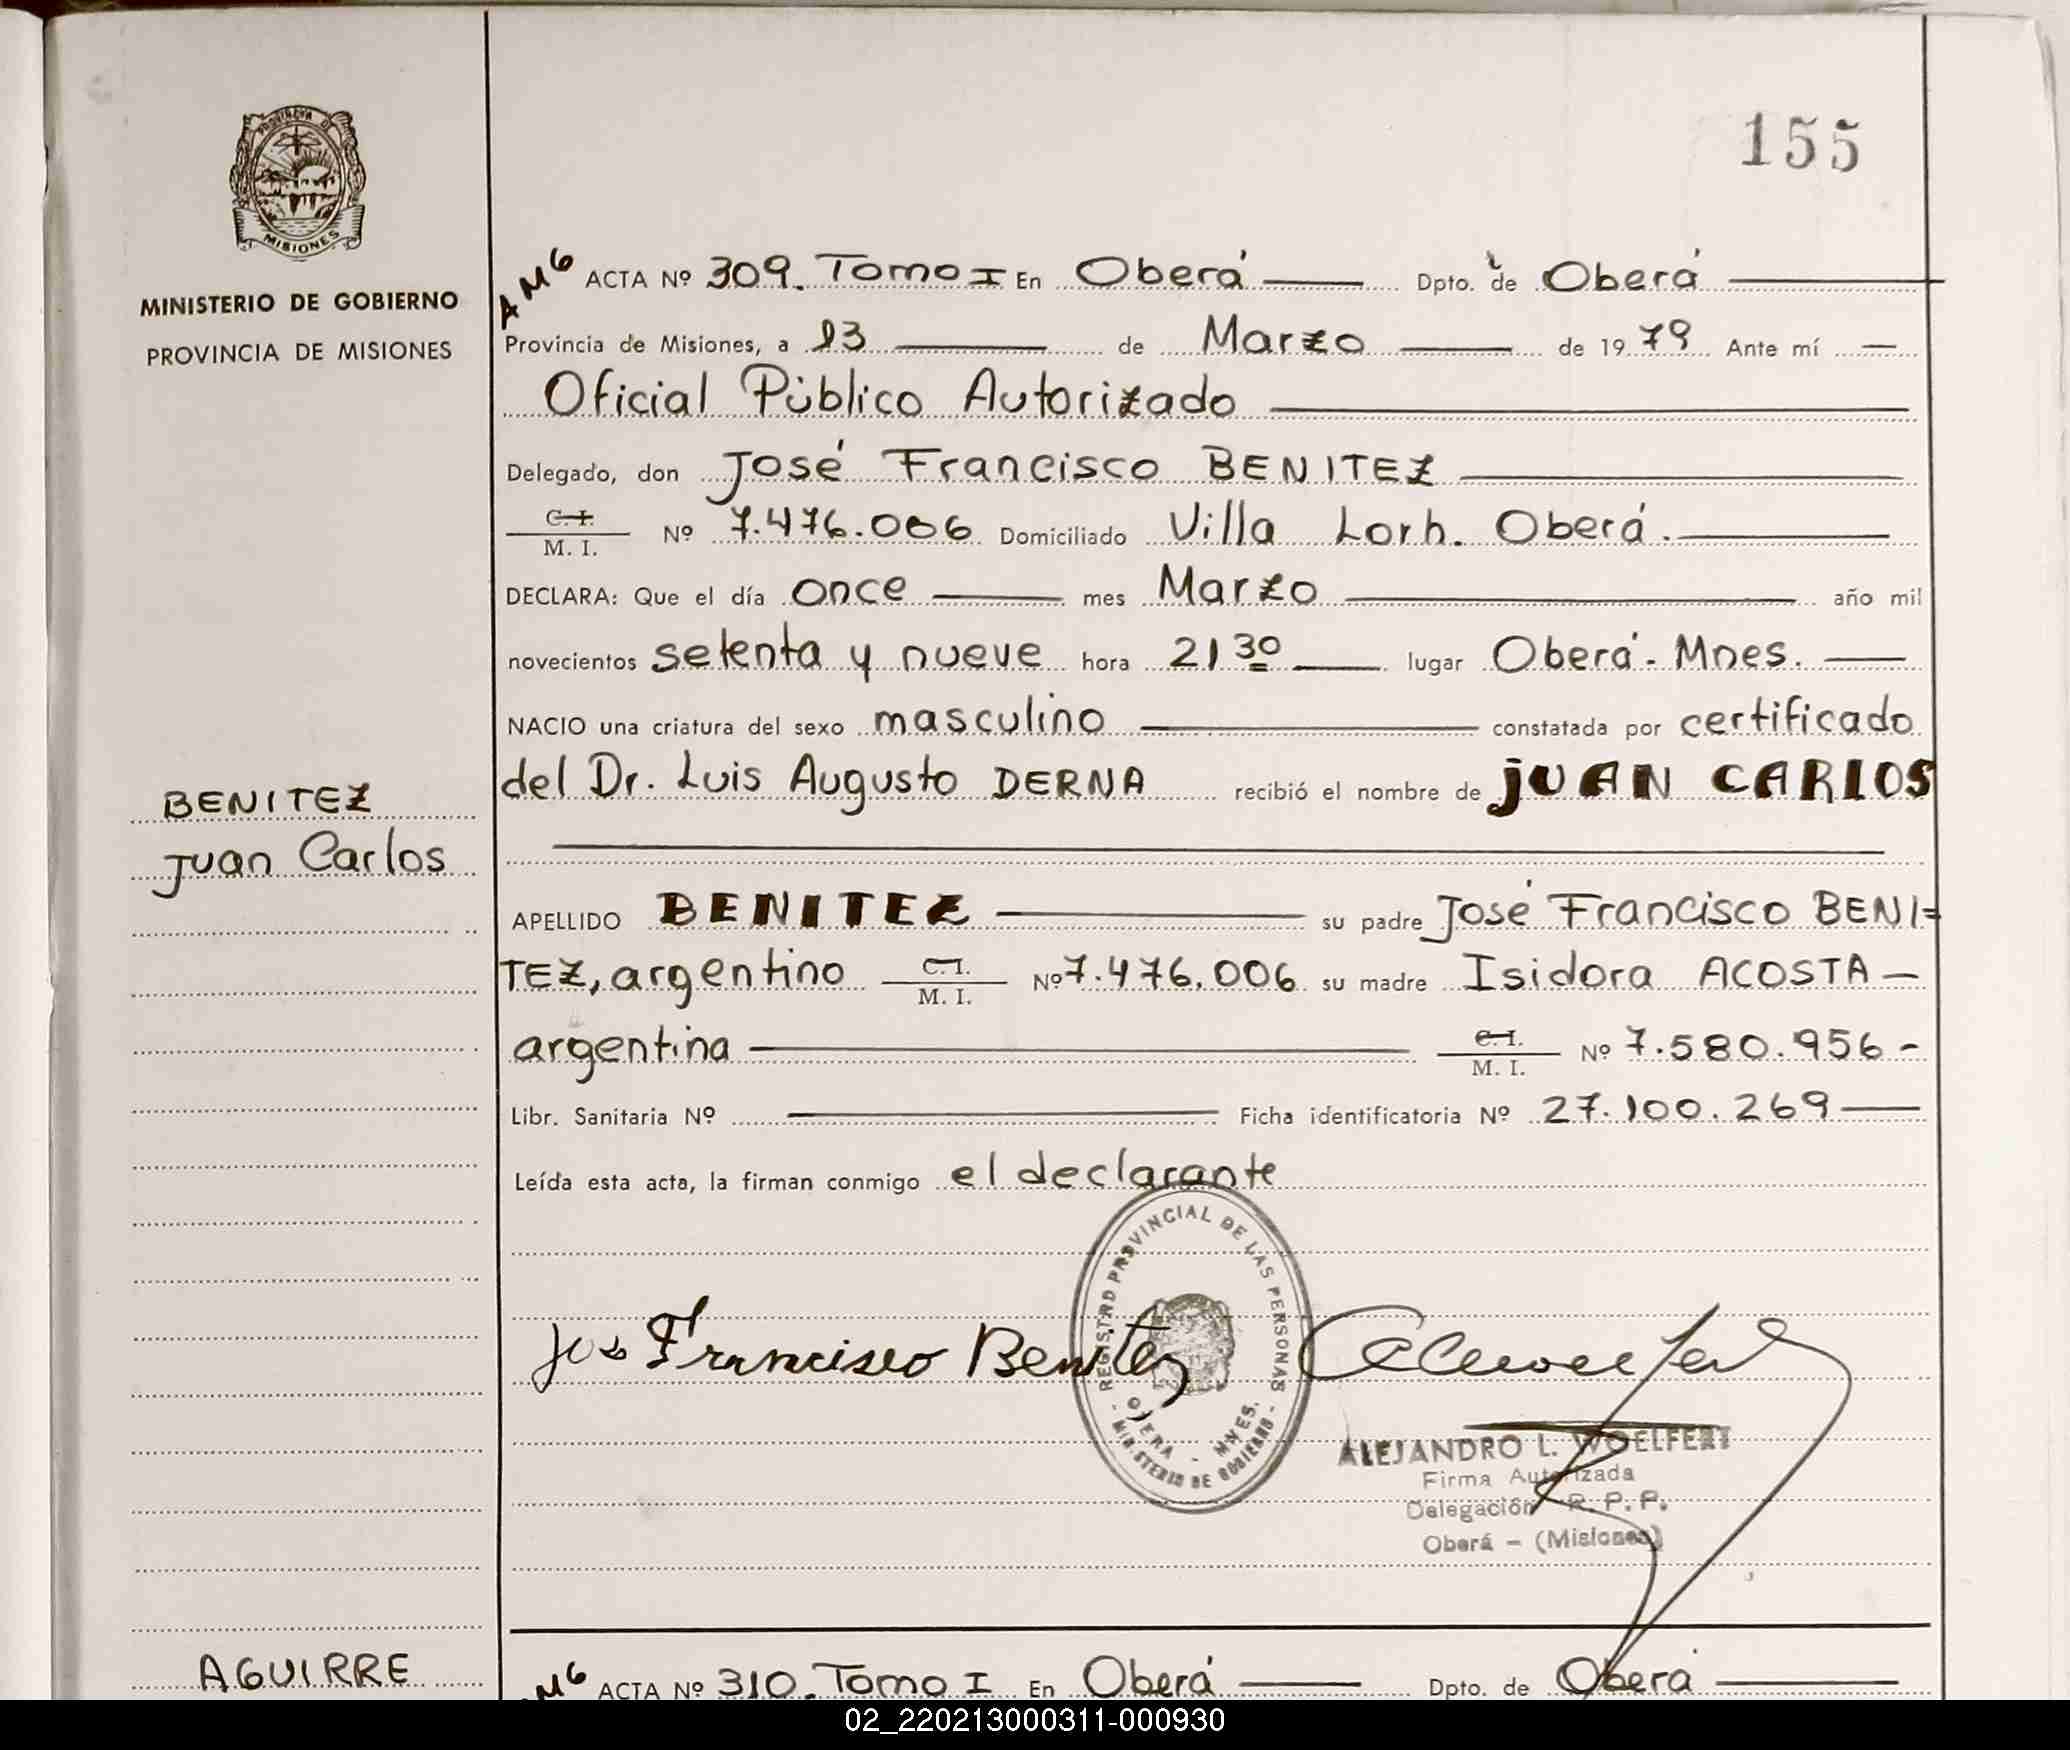 155
PROVINCIA DE
MISIONES
MINISTERIO DE GOBIERNO
PROVINCIA DE MISIONES
AMG ACTA Nº 309. Tomo I En Oberá Dpto. de Oberá
Provincia de Misiones, a 13 de Marzo de 1979 Ante mí
Oficial Público Autorizado
Delegado, don José Francisco BENITEZ
C. I.
M. I. Nº 7.476.006 Domiciliado Villa Lorh. Oberá.
DECLARA: Que el día once mes Marzo año mil
novecientos setenta y nueve hora 21 30 lugar Oberá - Mnes.
NACIO una criatura del sexo masculino constatada por certificado
del Dr. Luis Augusto DERNA recibió el nombre de JUAN CARLOS
BENITEZ
Juan Carlos
APELLIDO BENITEZ su padre José Francisco BENI=
TEZ, argentino C. I. M. I. Nº 7.476.006 su madre Isidora ACOSTA -
argentina C. I. M. I. Nº 7.580.956 -
Libr. Sanitaria Nº Ficha identificatoria Nº 27.100.269
Leída esta acta, la firman conmigo el declarante
REGISTRO PROVINCIAL DE LAS PERSONAS
OBERA - MNES.
- MINISTERIO DE GOBIERNO -
Jose Francisco Benitez
ALEJANDRO L. WOELFERT
Firma Autorizada
Delegación R. P. P.
Oberá - (Misiones)
AGUIRRE
MG ACTA Nº 310. Tomo I En Oberá Dpto. de Oberá
02_220213000311-000930